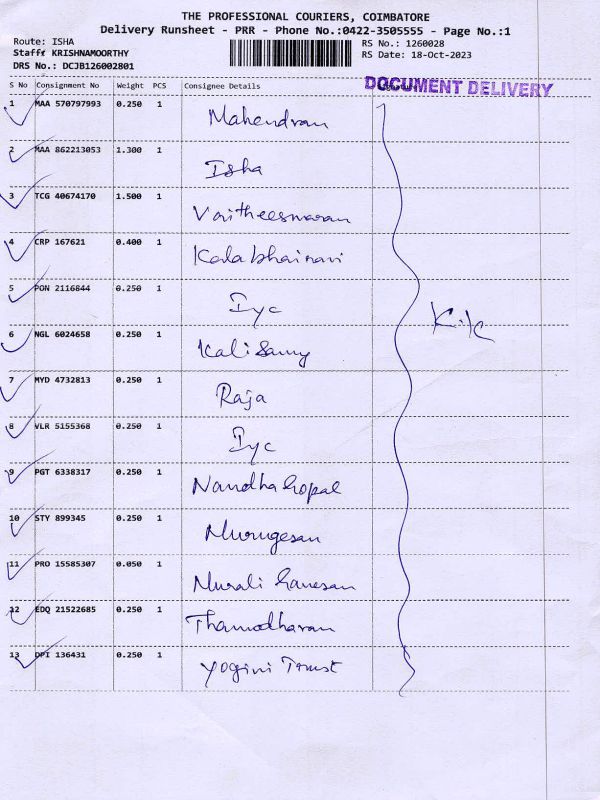 THE PROFESSIONAL COURIERS, COIMBATORE
Delivery Runsheet - PRR - Phone No.:0422-3505555 - Page No.:1
Route: ISHA
Staff: KRISHNAMOORTHY
DRS No.: DCJB126002801
RS No.: 1260028
RS Date: 18-Oct-2023
S No Consignment No Weight PCS Consignee Details
DOCUMENT DELIVERY
1 MAA 570797993 0.250 1 Mahendran
2 MAA 862213053 1.300 1 Isha
3 TCG 40674170 1.500 1 Vaitheeswaran
4 CRP 167621 0.400 1 Kalabhairavi
5 PON 2116844 0.250 1 Iyc
6 NGL 6024658 0.250 1 Kalisamy
7 MYD 4732813 0.250 1 Raja
8 VLR 5155368 0.250 1 Iyc
9 PGT 6338317 0.250 1 Nandha Gopal
10 STY 899345 0.250 1 Murugesan
11 PRO 15585307 0.050 1 Murali Ganesan
12 EDQ 21522685 0.250 1 Thamodharan
13 DPI 136431 0.250 1 Yogini Trust
K.K